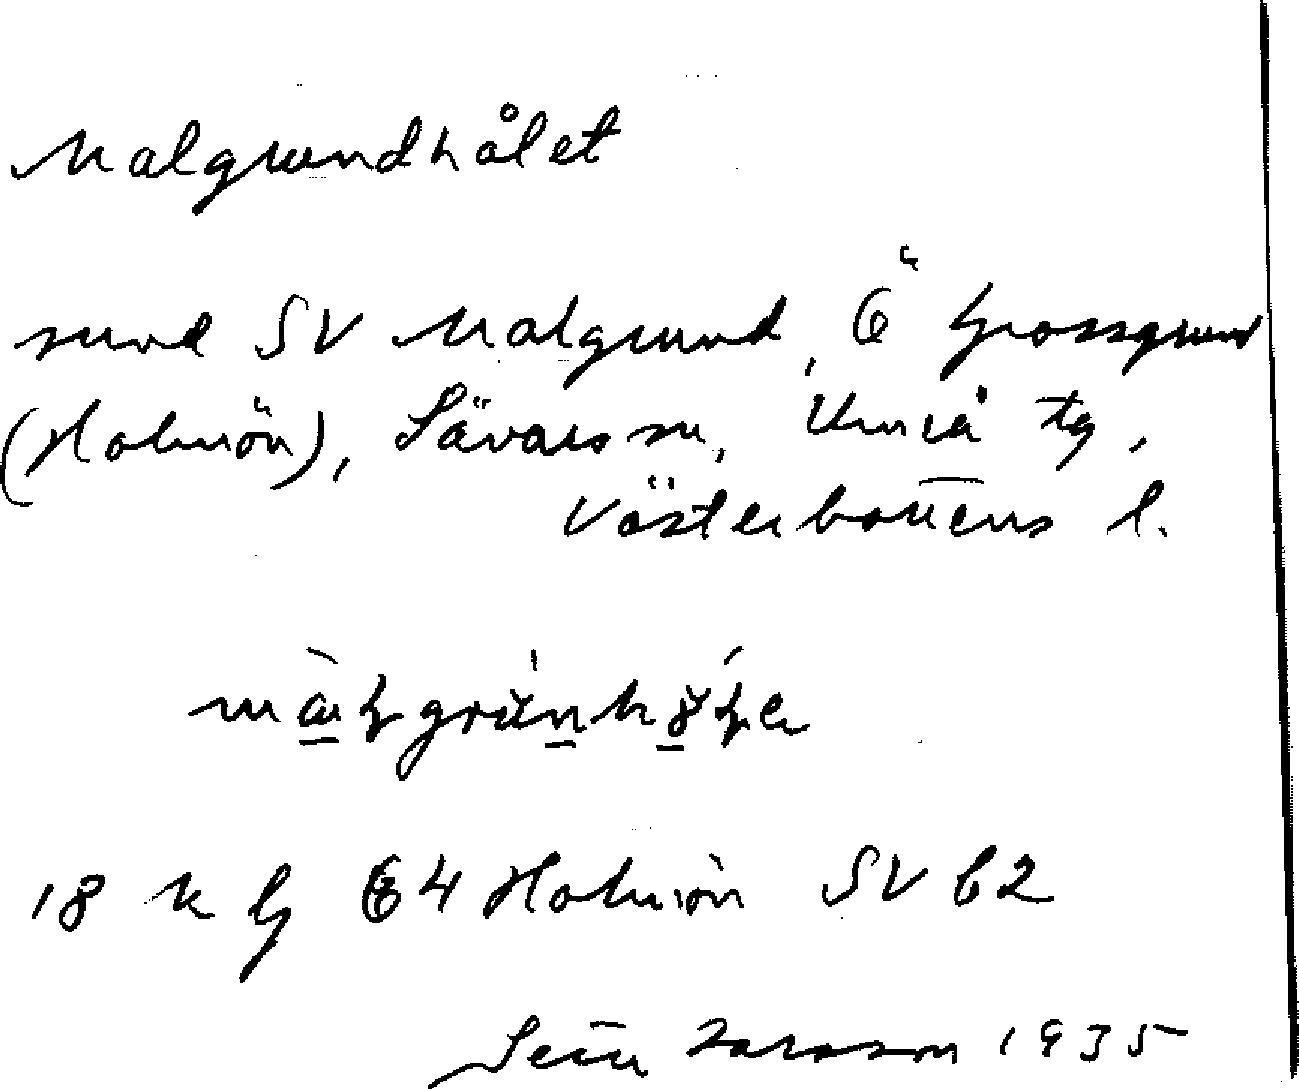 Malgrundhålet
sund SV Malgrund, Ö Grossgrund
(Holmön), Sävars sn, Umeå tg,
Västerbottens l.
18 K 64 Holmön SV b2
Larsson 1935